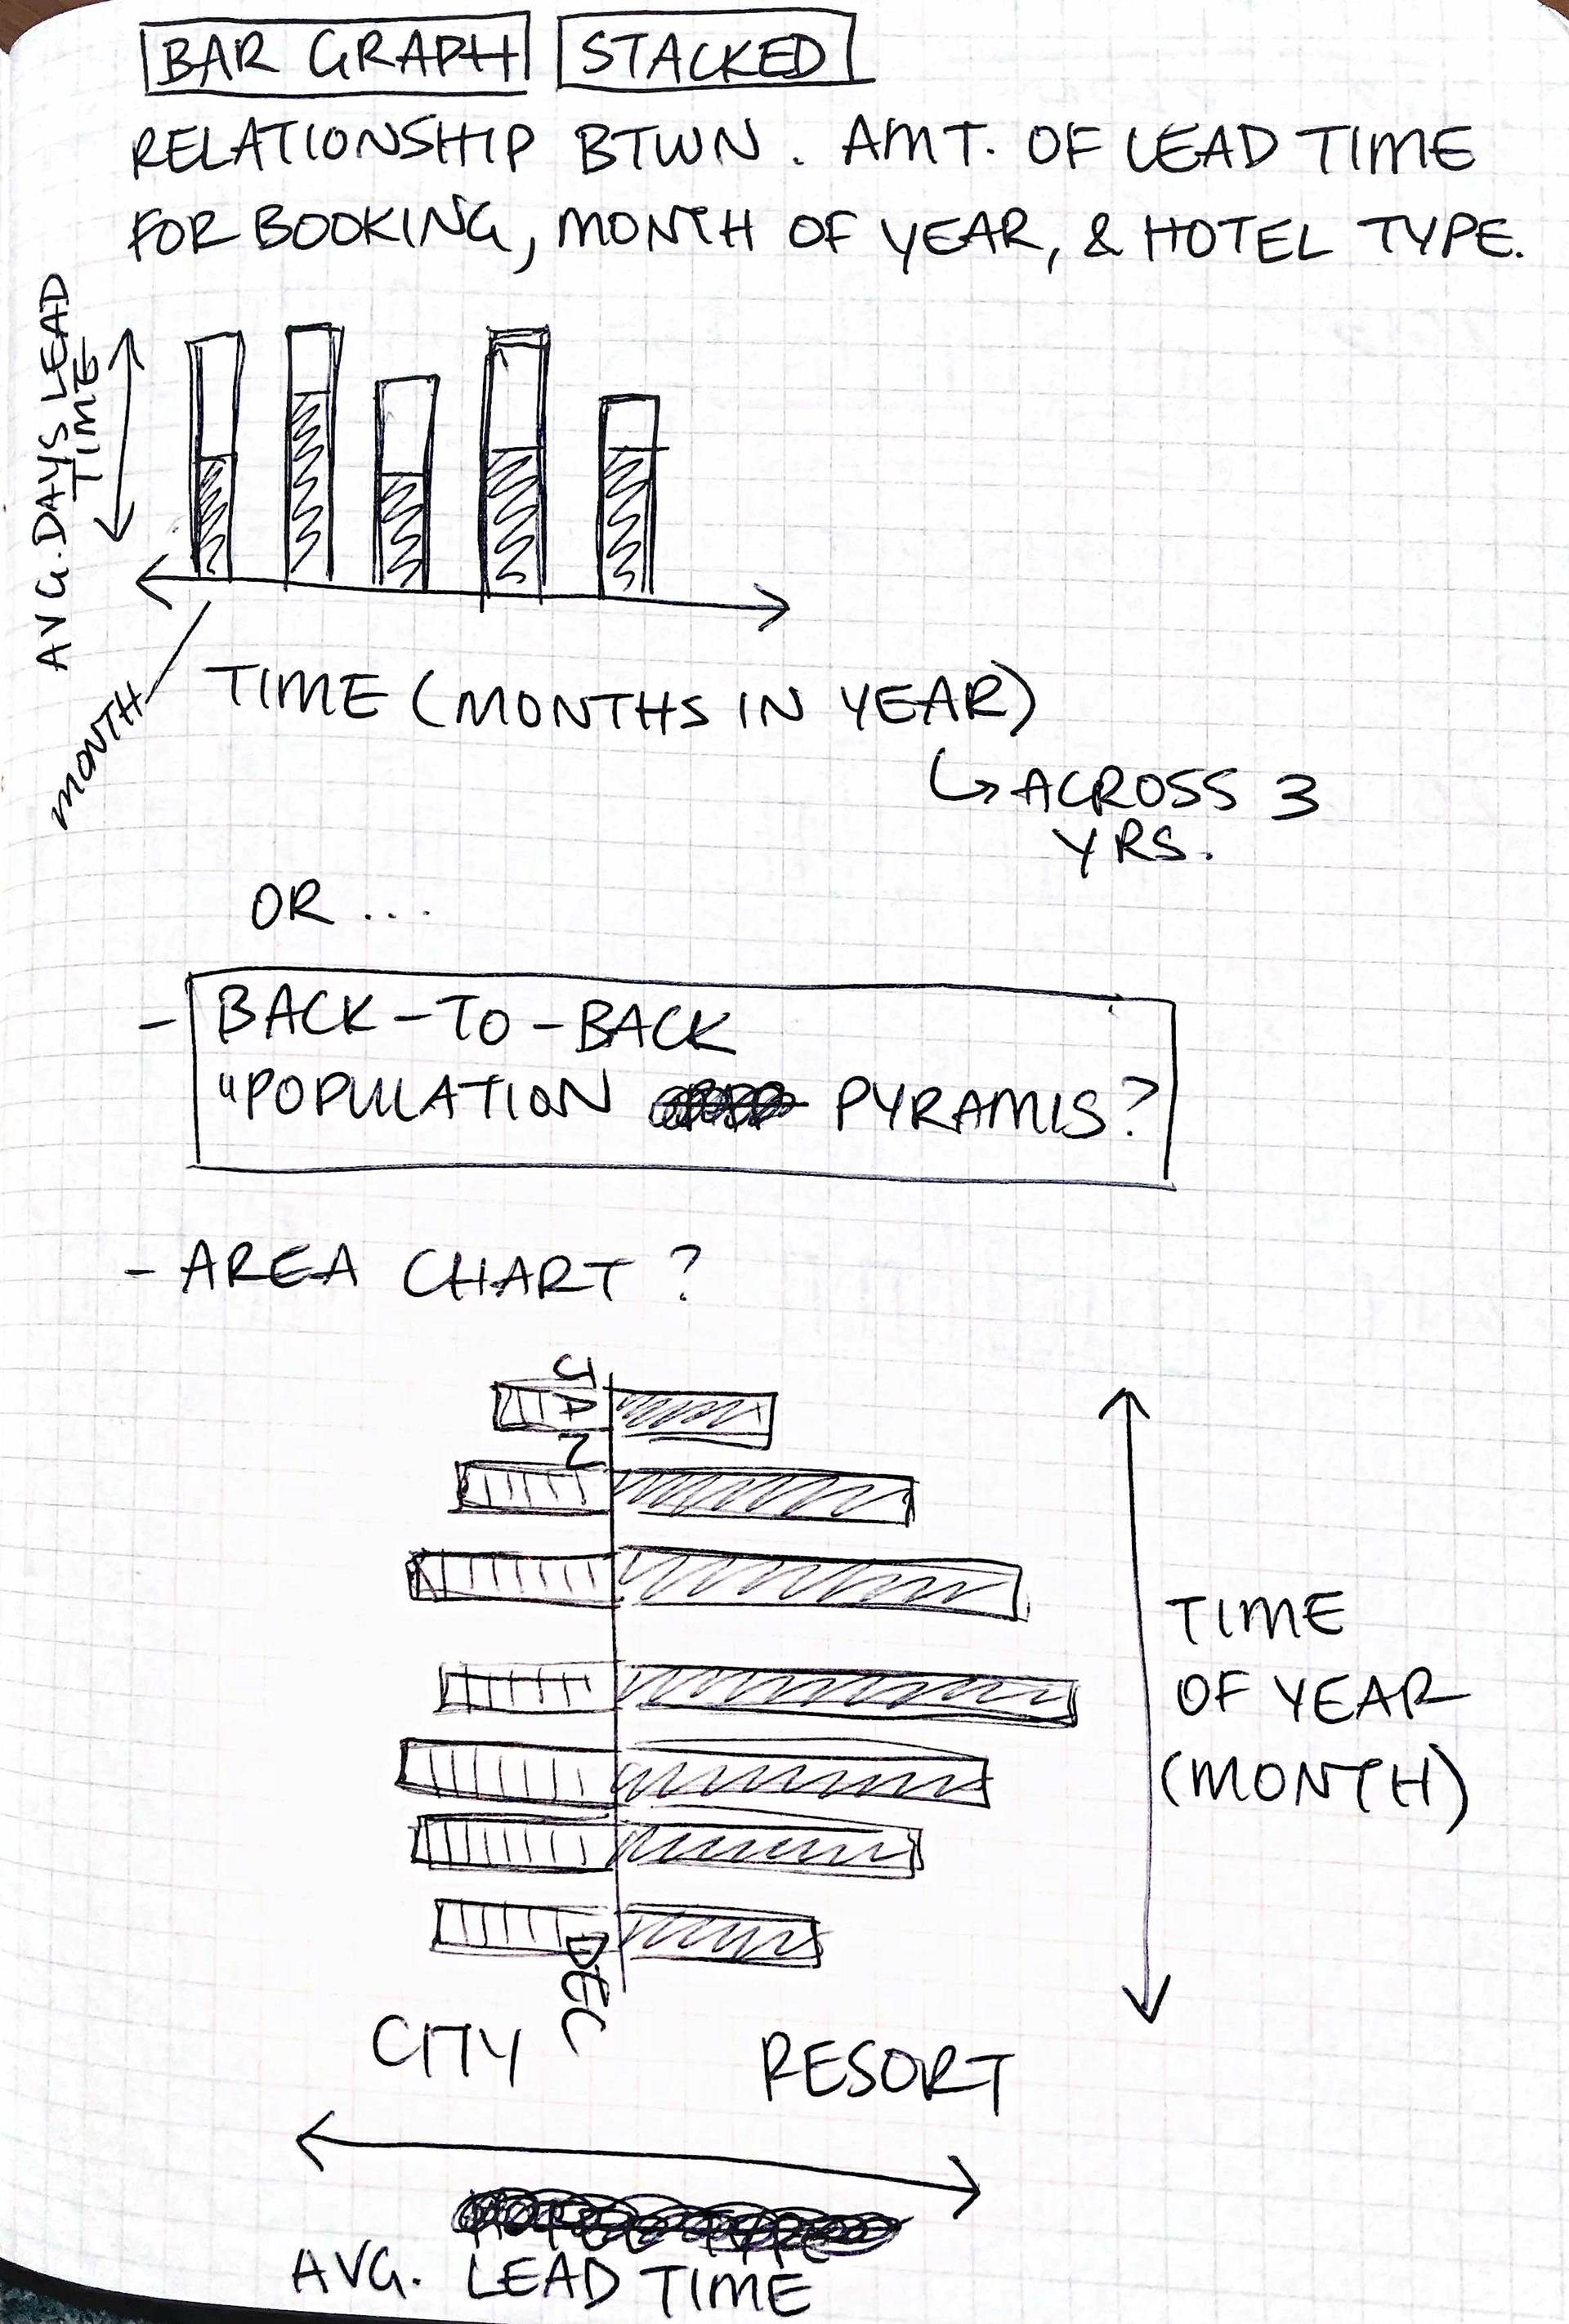 BAR GRAPH STACKED
RELATIONSHIP BTWN. AMT. OF LEAD TIME
FOR BOOKING, MONTH OF YEAR, & HOTEL TYPE.
AVG. DAYS LEAD
TIME
MONTH
TIME (MONTHS IN YEAR)
↳ ACROSS 3
YRS.
OR ...
- BACK-TO-BACK
"POPULATION PYRAMIS?
- AREA CHART?
JAN
TIME
OF YEAR
(MONTH)
DEC
CITY
RESORT
AVG. LEAD TIME